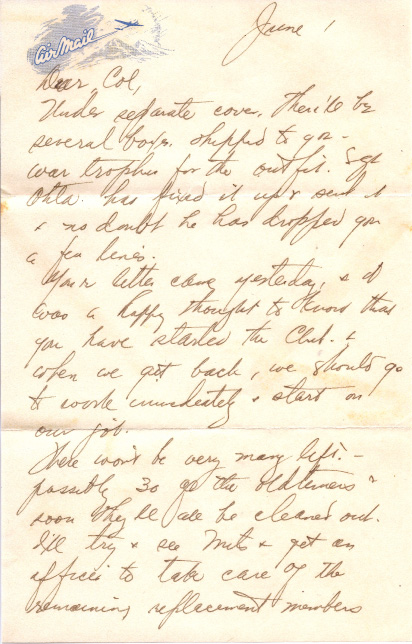 Air Mail
June 1
Dear Col,
Under separate cover, there'll be
several boxes shipped to you -
war trophies for the outfit. Sgt
Ohta has fixed it up & sent it
& no doubt he has dropped you
a few lines.
Your letter came yesterday, & it
was a happy thought to know that
you have started the Club. &
when we get back, we should go
to work immediately & start on
our job.
There won't be very many left. -
possibly 30 of the "oldtimers" &
soon they'll all be cleaned out.
I'll try & see Mits & get an
officer to take care of the
remaining replacement members